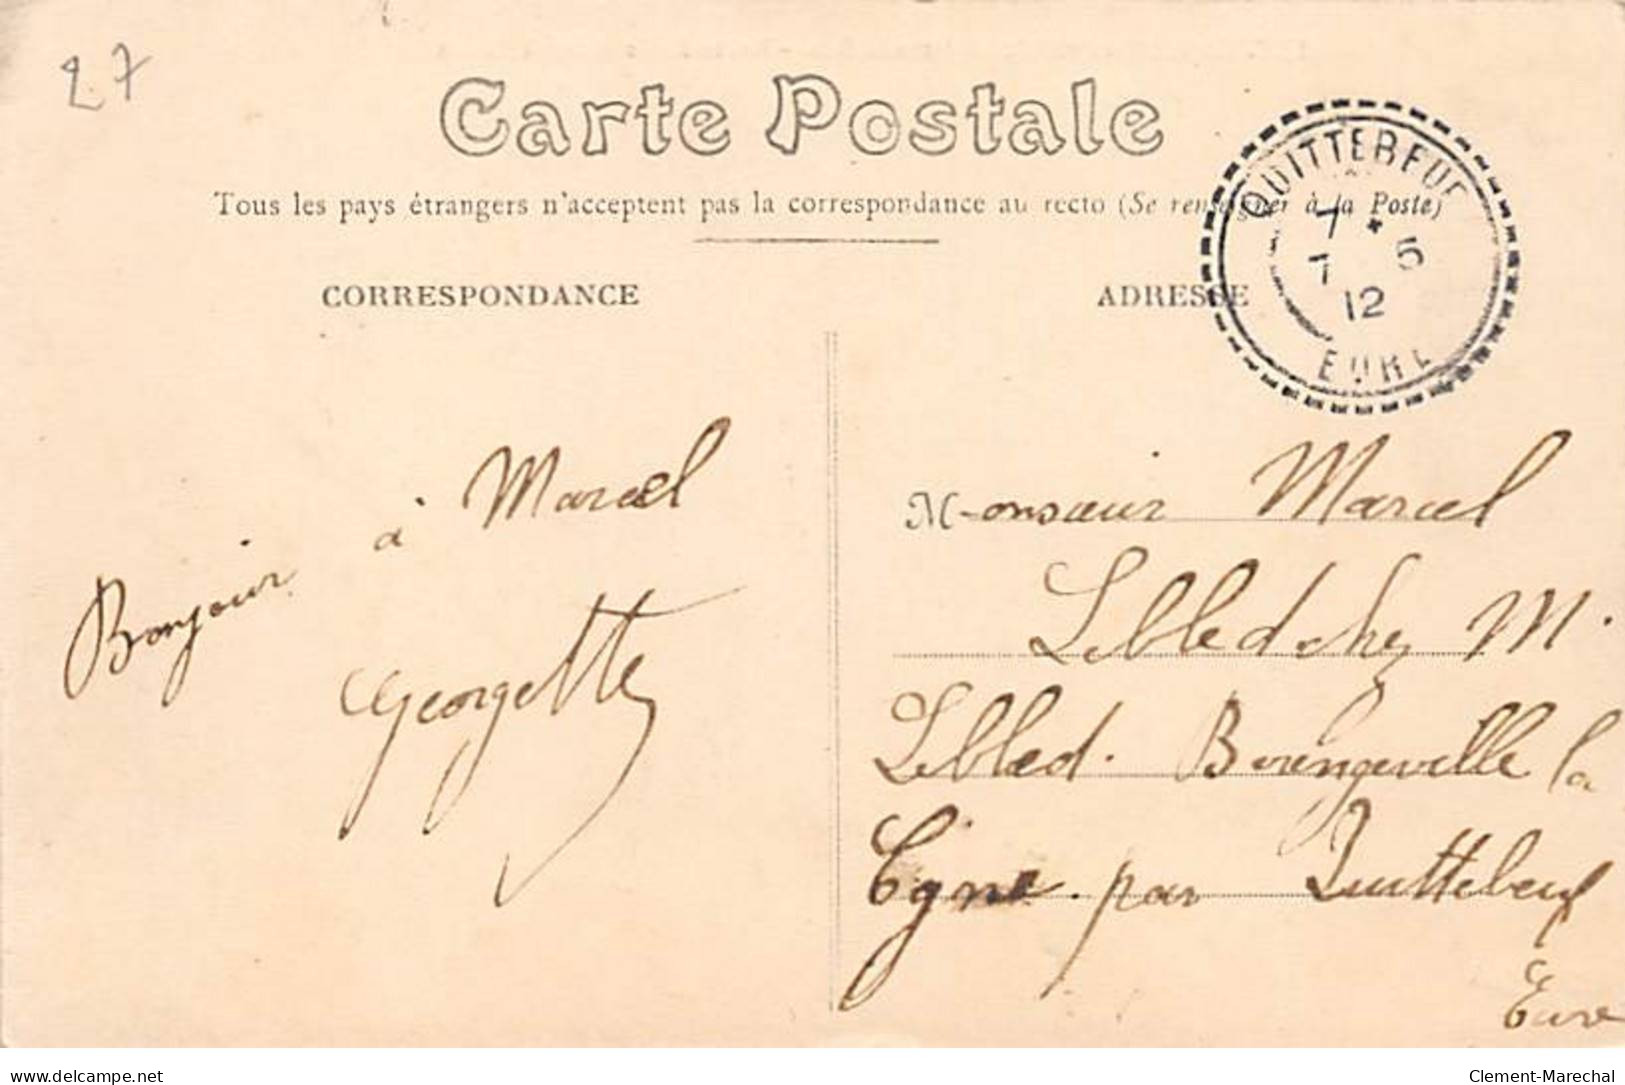 27
Carte Postale
Tous les pays étrangers n'acceptent pas la correspondance au recto (Se renseigner à la Poste)
CORRESPONDANCE
ADRESSE
QUITTEBEUF
7 *
7 5
12
EURE
Bonjour à Marcel
Georgette
Monsieur Marcel
Lebled chez M.
Lebled. Berengeville la
Cgne. par Quittebeuf
Eure
delcampe.net
Clement-Marechal